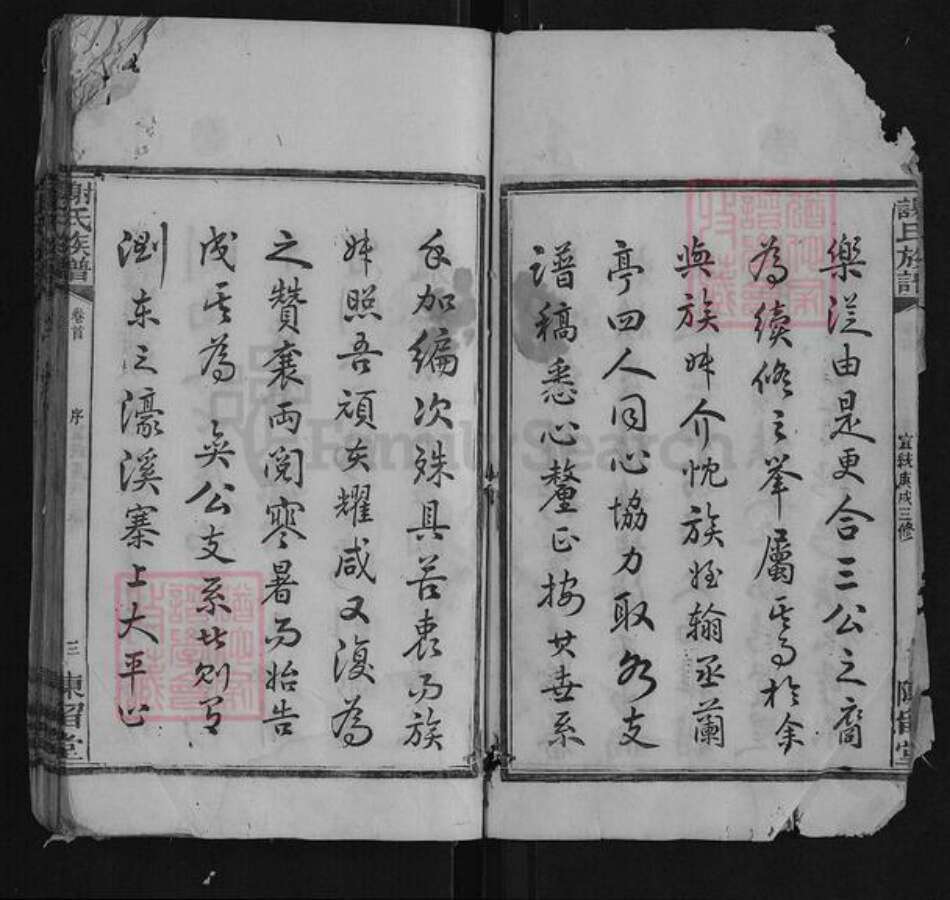 謝氏族譜
宣統庚戌三修
陳留堂
樂從由是更合三公之裔
為續修之舉屬其事於余
與族姊介忱族姪翰丞蘭
亭四人同心協力取各支
譜稿悉心釐正按其世系
手加編次殊具苦衷而族
姊照吾頑友耀咸又復為
之贊襄兩閱寒暑而始告
成其為 公支系者則有
澍東之濠溪寨上大平
謝氏族譜
卷首
序
三
陳留堂
FamilySearch